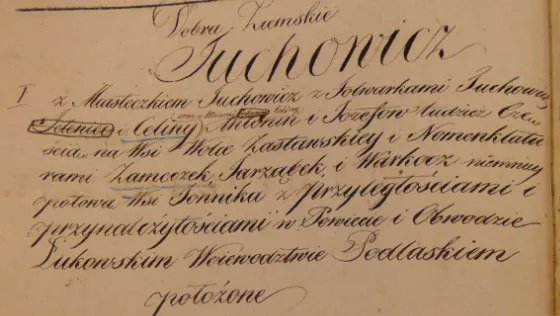 Dobra Ziemskie
Tuchowicz
I z Miasteczkiem Tuchowicz z Folwarkami Tuchowicz
i Celiny Antonin i Jozefow tudzież Czę=
ścią na Wsi Wolce Zastawskiey i Nomenklatu
rami Zameczek Jarząbek i Warkocz niemniey
połowa Wsi Jonnika z przyległościami i
przynależytościami w Powiecie i Obwodzie
Łukowskim Woiewodztwie Podlaskiem
położone